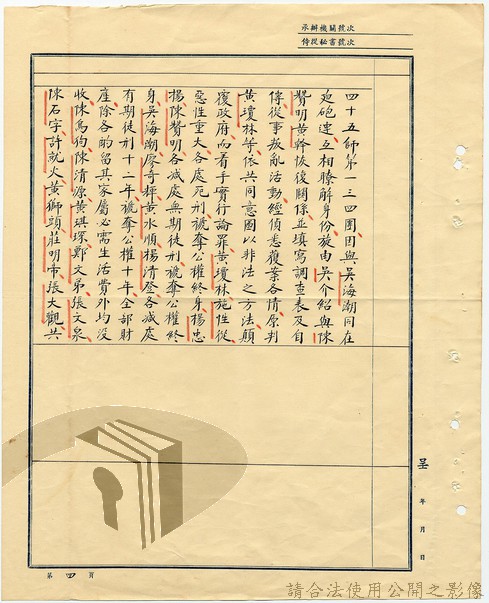 承辦機關號次
侍從秘書號次
四十五師第一三四團因與吳海潮同在
迫砲連互相瞭解身份旋由吳介紹與陳
贊明黃幹恢復關係並填寫調查表及自
傳從事叛亂活動經偵悉獲案各情原判
黃瓊林等依共同意圖以非法之方法顛
覆政府而着手實行論罪黃瓊林施性從
惡性重大各處死刑褫奪公權終身楊忠
楊陳贊明各減處無期徒刑褫奪公權終
身吳海潮廖奇輝黃水順楊清登各減處
有期徒刑十二年褫奪公權十年全部財
產除各酌留其家屬必需生活費外均沒
收陳為狗陳清源黃琪琛鄭文弟張文泉
陳石字許就火黃獅頭莊明帝張大觀共
呈
年 月 日
第 四 頁
請合法使用公開之影像